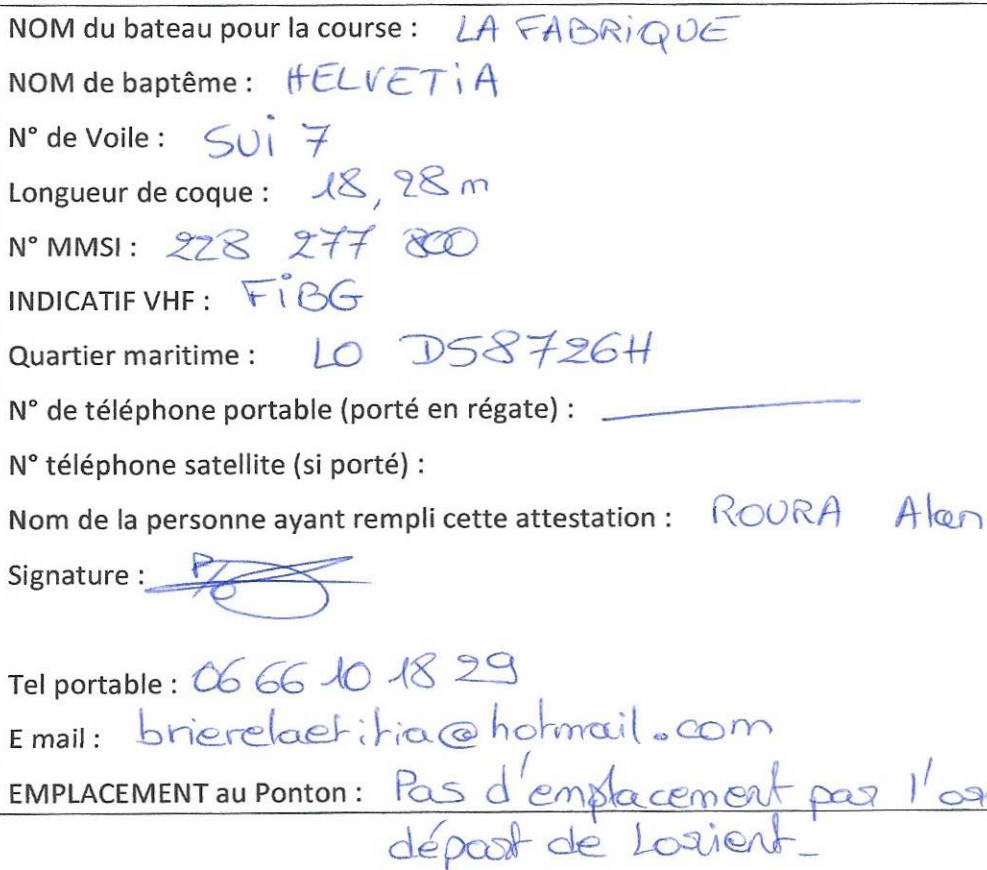 NOM du bateau pour la course : LA FABRiQUE
NOM de baptême : HELVETiA
N° de Voile : SUi 7
Longueur de coque : 18,28 m
N° MMSI : 228 277 800
INDICATIF VHF : FiBG
Quartier maritime : LO D58726H
N° de téléphone portable (porté en régate) :
N° téléphone satellite (si porté) :
Nom de la personne ayant rempli cette attestation : ROURA Alan
Signature :
Tel portable : 06 66 10 18 29
E mail : brierelaetitia@hotmail.com
EMPLACEMENT au Ponton : Pas d'emplacement par l'
départ de Lorient_